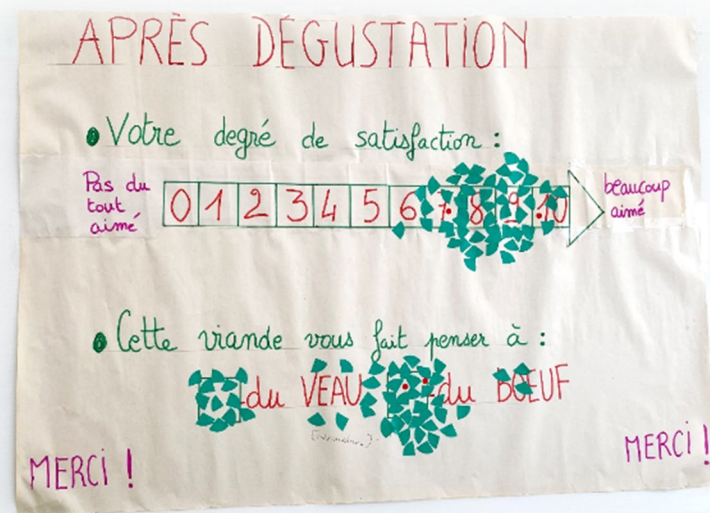 APRÈS DÉGUSTATION
• Votre degré de satisfaction :
Pas du tout aimé
0 1 2 3 4 5 6 7 8 9 10
beaucoup aimé
• Cette viande vous fait penser à :
du VEAU du BŒUF
MERCI !
MERCI !